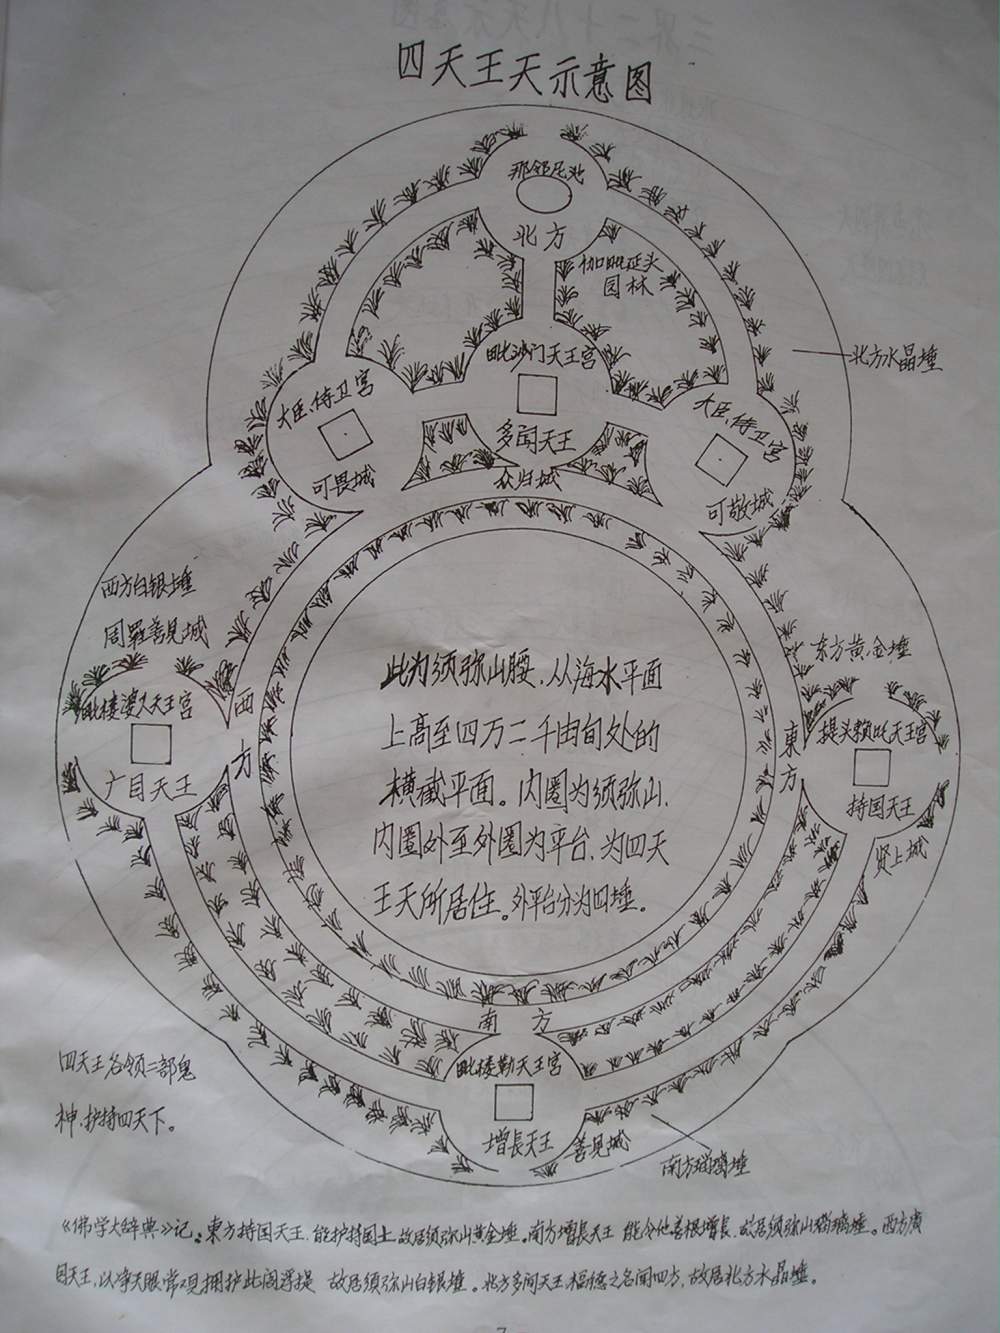 四天王天示意图
那邻尼池
北方
伽毗延头
园林
毗沙门天王宫
北方水晶埵
大臣、侍卫宫
大臣、侍卫宫
多闻天王
可畏城
众归城
可敬城
西方白银埵
周罗善见城
东方黄金埵
毗楼婆叉天王宫
西方
東方
提头赖吒天王宫
广目天王
持国天王
贤上城
此为须弥山腰，从海水平面
上高至四万二千由旬处的
横截平面。内圈为须弥山，
内圈外至外圈为平台，为四天
王天所居住。外平台分为四埵。
南方
毗楼勒天王宫
四天王各领二部鬼
神，护持四天下。
增長天王
善见城
南方琉璃埵
《佛学大辞典》记：東方持国天王，能护持国土故居须弥山黄金埵。南方增長天王 能令他善根增长，故居须弥山琉璃埵。西方廣
目天王，以净天眼常观拥护此阎浮提 故居须弥山白银埵。北方多闻天王福德之名闻四方，故居北方水晶埵。
7